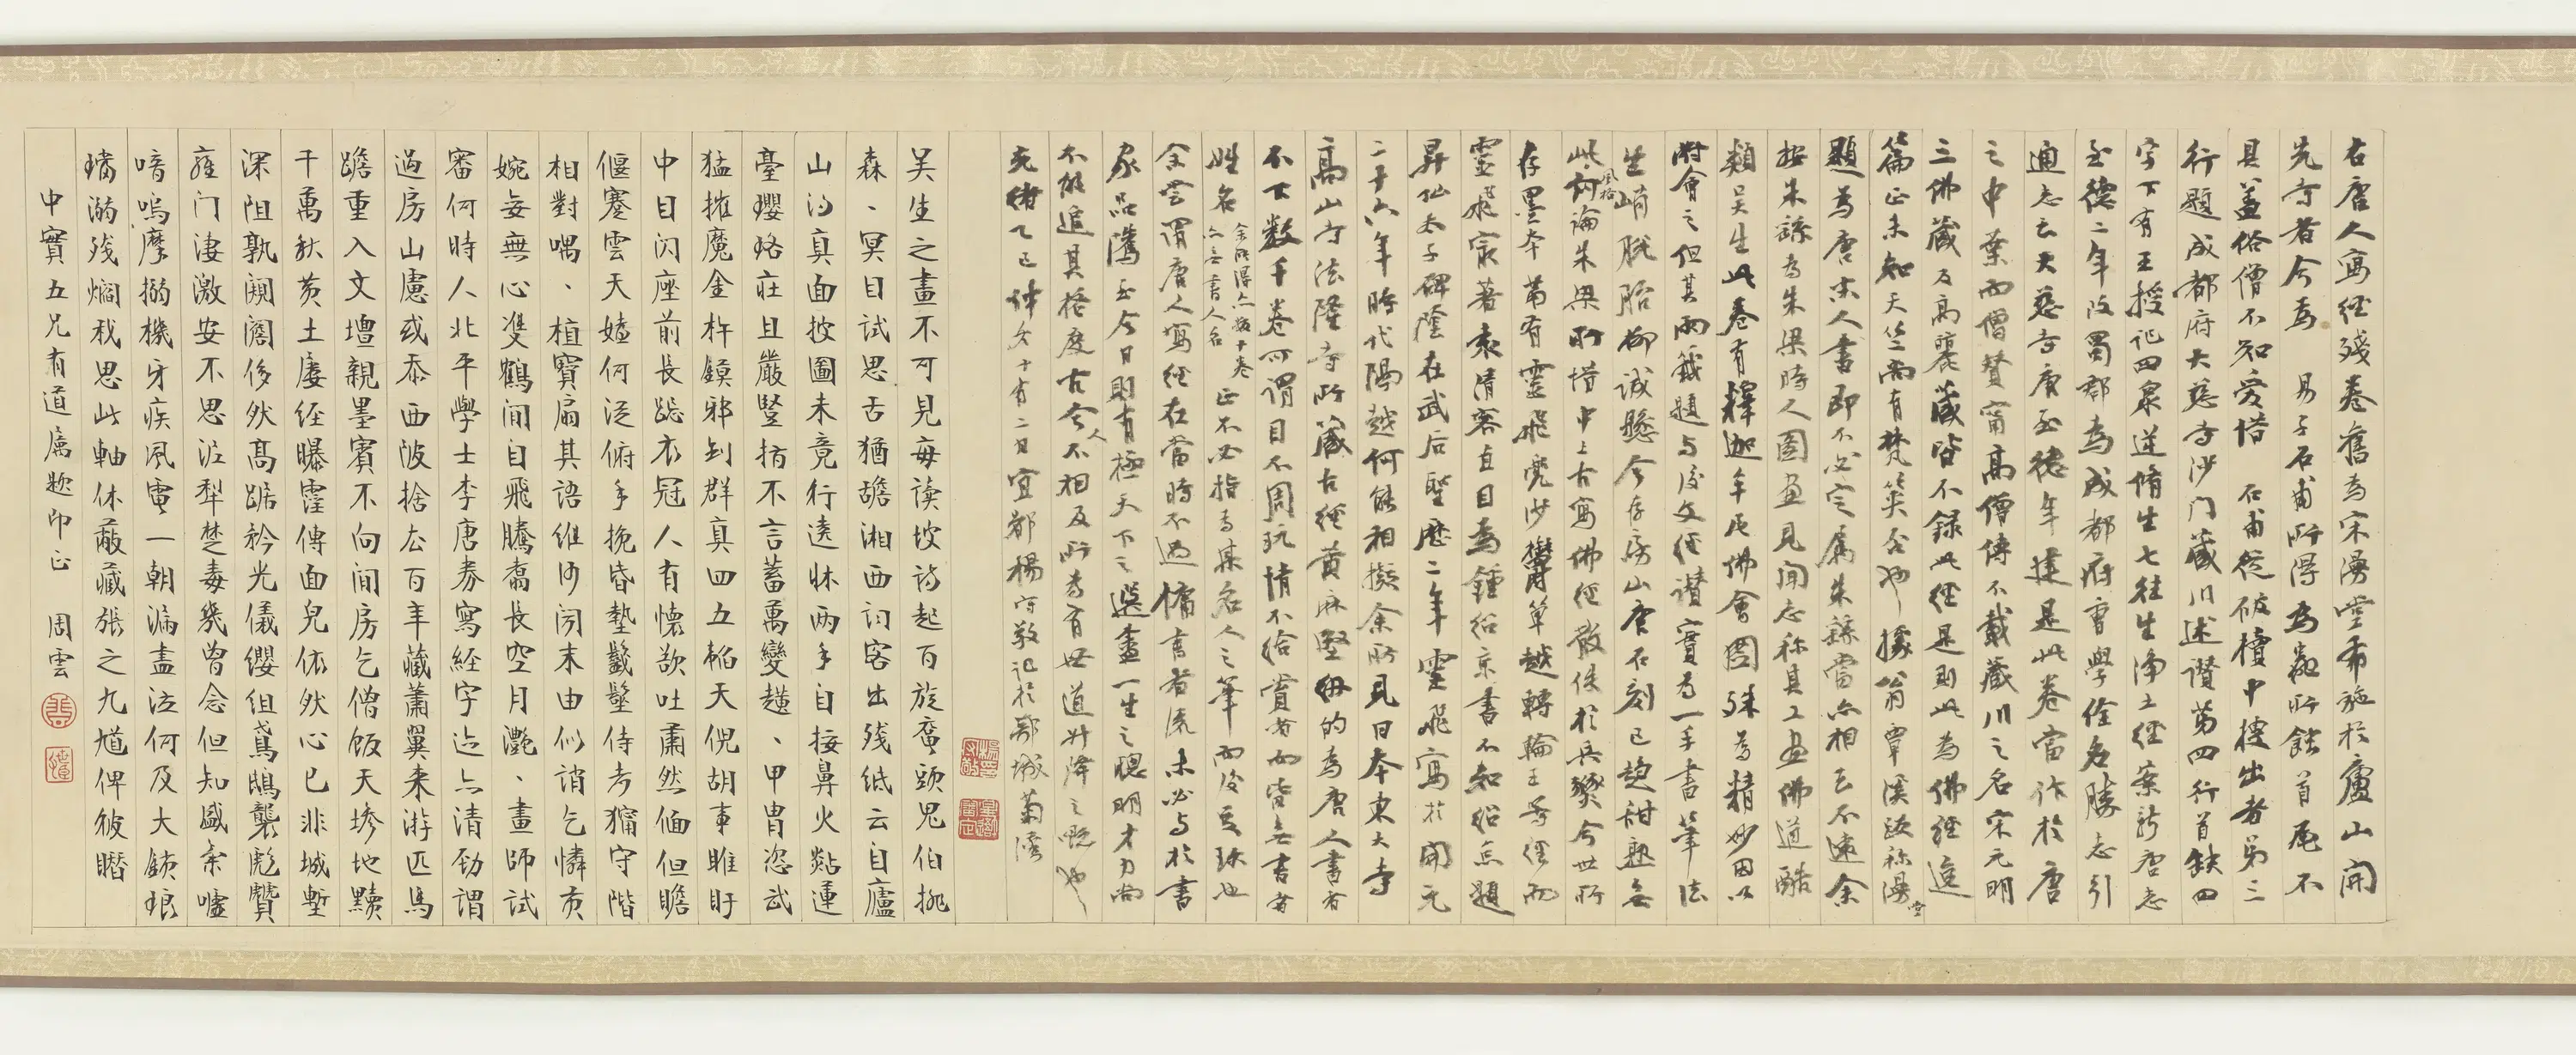 右唐人寫經殘卷舊為宋漫堂布施於廬山開
先寺者今為 易子石甫所得為蠹所蝕首尾不
具蓋俗僧不知愛惜 石甫從破櫝中搜出者弟三
行題成都府大慈寺沙门藏川述讚苐四行首缺四
字下有王授記四眾逆脩生七往生净土經案新唐志
至德二年改蜀郡為成都府曹學佺名勝志引
通志云大慈寺唐至德年建是此卷當作於唐
之中葉而僧贊甯高僧傳不載藏川之名宋元明
三佛藏及高麗藏皆不録此經是則此為佛經逸
篇正未知天竺尚有梵筴否也據翁覃溪跋稱漫堂
題為唐末人書即不必定屬朱繇當亦相去不遠余
按朱繇为朱梁時人圖畫見聞志称其工畫佛道酷
類吴生此卷有釋迦牟尼佛會圖殊為精妙因以
附會之但其兩籤題与後文經讚實為一手書筆法
生峭脱胎柳诚懸今存房山唐石刻已趋甜熟无
此風格何論朱梁所惜中上古寫佛經散佚於兵燹今世所
存墨本苐有靈飛兜沙欝單越轉輪王等經而
靈飛最著袁清容直目為鍾绍京書不知绍京題
昇仙太子碑陰在武后聖歷二年靈飛寫於開元
二十六年時代隔越何能相擬余所見日本東大寺
高山寺法隆寺所藏古經黄麻堅紉的為唐人書者
不下数千卷可謂目不周玩情不给賞者而皆无書者
姓名余所得亦数十卷亦无書人名正不必指为某名人之筆而後足珍也
余嘗謂唐人寫經在當時不過傭書者流未必与於書
家品騭至今日則有極天下之選盡一生之聰明才力尚
不能追其格度古今人不相及所为有世道升降之慨也
光緒乙巳仲冬十有二日宜都楊守敬記於鄂城菊湾
吴生之畫不可見每读坡诗起百旋蛮頭鬼伯挑
森、冥目試思舌猶瞻湘西词客出残纸云自廬
山得真面披圖未竟行逺牀两手自接鼻火㸃運
臺瓔珞莊且嚴豎指不言蓄萬變趨、甲胄恣武
猛摧魔金杵鏌邪剑群真四五軺天倪胡事睢盱
中目闪座前長跽衣冠人有懷欲吐肅然偭但瞻
偃蹇雲天嬉何泛俯手挽昏墊鬣鬛侍者獨守階
相對喁、植寶扇其語維何闻末由似誚乞憐贡
婉娈無心隻鶴閒自飛騰翥長空月灔、畫師試
審何時人北平學士李唐券寫經字迹亦清劲謂
過房山慮或忝西陂捨去百年藏蕭翼来游匹馬
蹌重入文壇親墨賓不向閒房乞僧飯天埁地黷
干萬秋黄土屡经曝霪傳面兒依然心已非城塹
深阻孰闚阇侈然髙踞衿光儀纓组鳶鴟襲彪贙
雍门凄激安不思泣犁楚毒幾曾念但知盛条噓
喑嗚摩搦機牙疾風電一朝漏盡泣何及大銕琅
璫溺残爓我思此軸休蔽藏張之九馗俾彼瞻
中實五兄有道属題即正 周雲